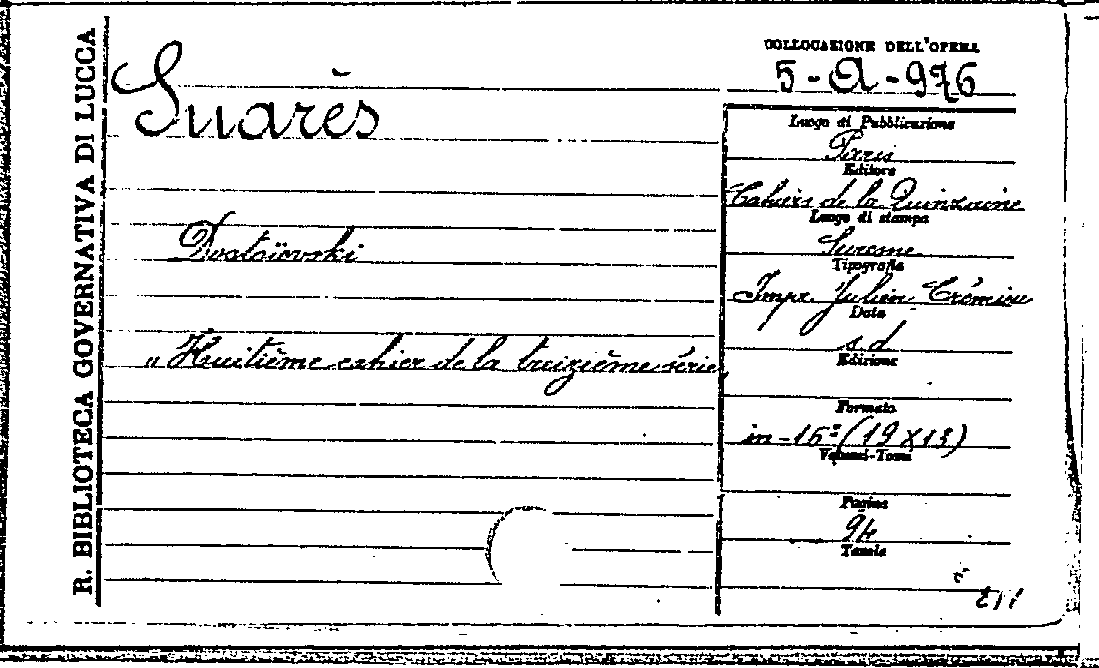 R. BIBLIOTECA GOVERNATIVA DI LUCCA
Suarès
Dostoïevski
„ Huitième cahier de la treizième série
COLLOCAZIONE DELL'OPERA
5-a-976
Luogo di Pubblicazione
Paris
Editore
Cahiers de la Quinzaine
Luogo di stampa
Suresne
Tipografia
Impr. Julien Crémieu
Data
s.d
Edizione
Formato
in-16° (19 x 13)
Volumi-Tomi
Pagine
94
Tavole